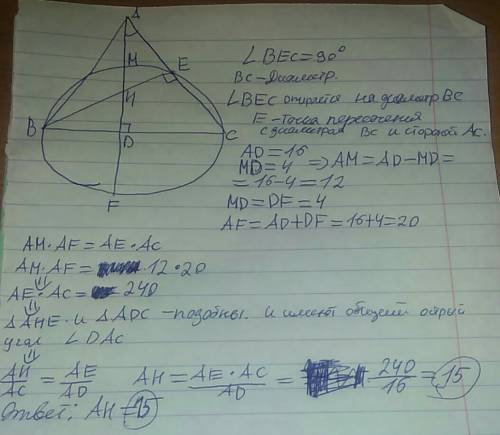 A
M
E
И
B
D
C
F
∠BEC=90°
BC-Диаметр.
∠BEC опирается на диаметр BC
E-точка пересечения
с диаметром BC и стороной AC.
AD=16
MD=4 ⇒ AM=AD-MD=
=16-4=12
MD=DF=4
AF=AD+DF=16+4=20
AM·AF=AE·AC
AM·AF= 12·20
⇓
AE·AC= 240
⇓
△AHE и △ADC -подобны. и имеют общий острый
угол ∠DAC
⇓
AH/AC = AE/AD AH= AE·AC/AD = 240/16 = 15
Ответ: AH=15